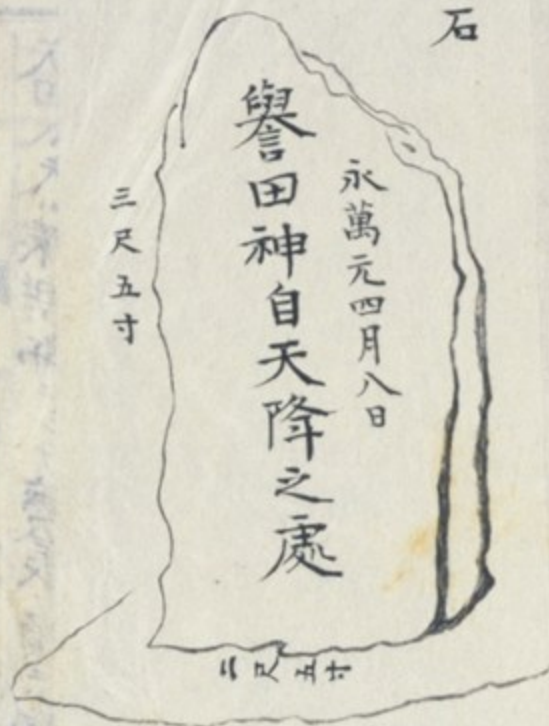 石
永萬元四月八日
譽田神自天降之處
三尺五寸
二尺五寸